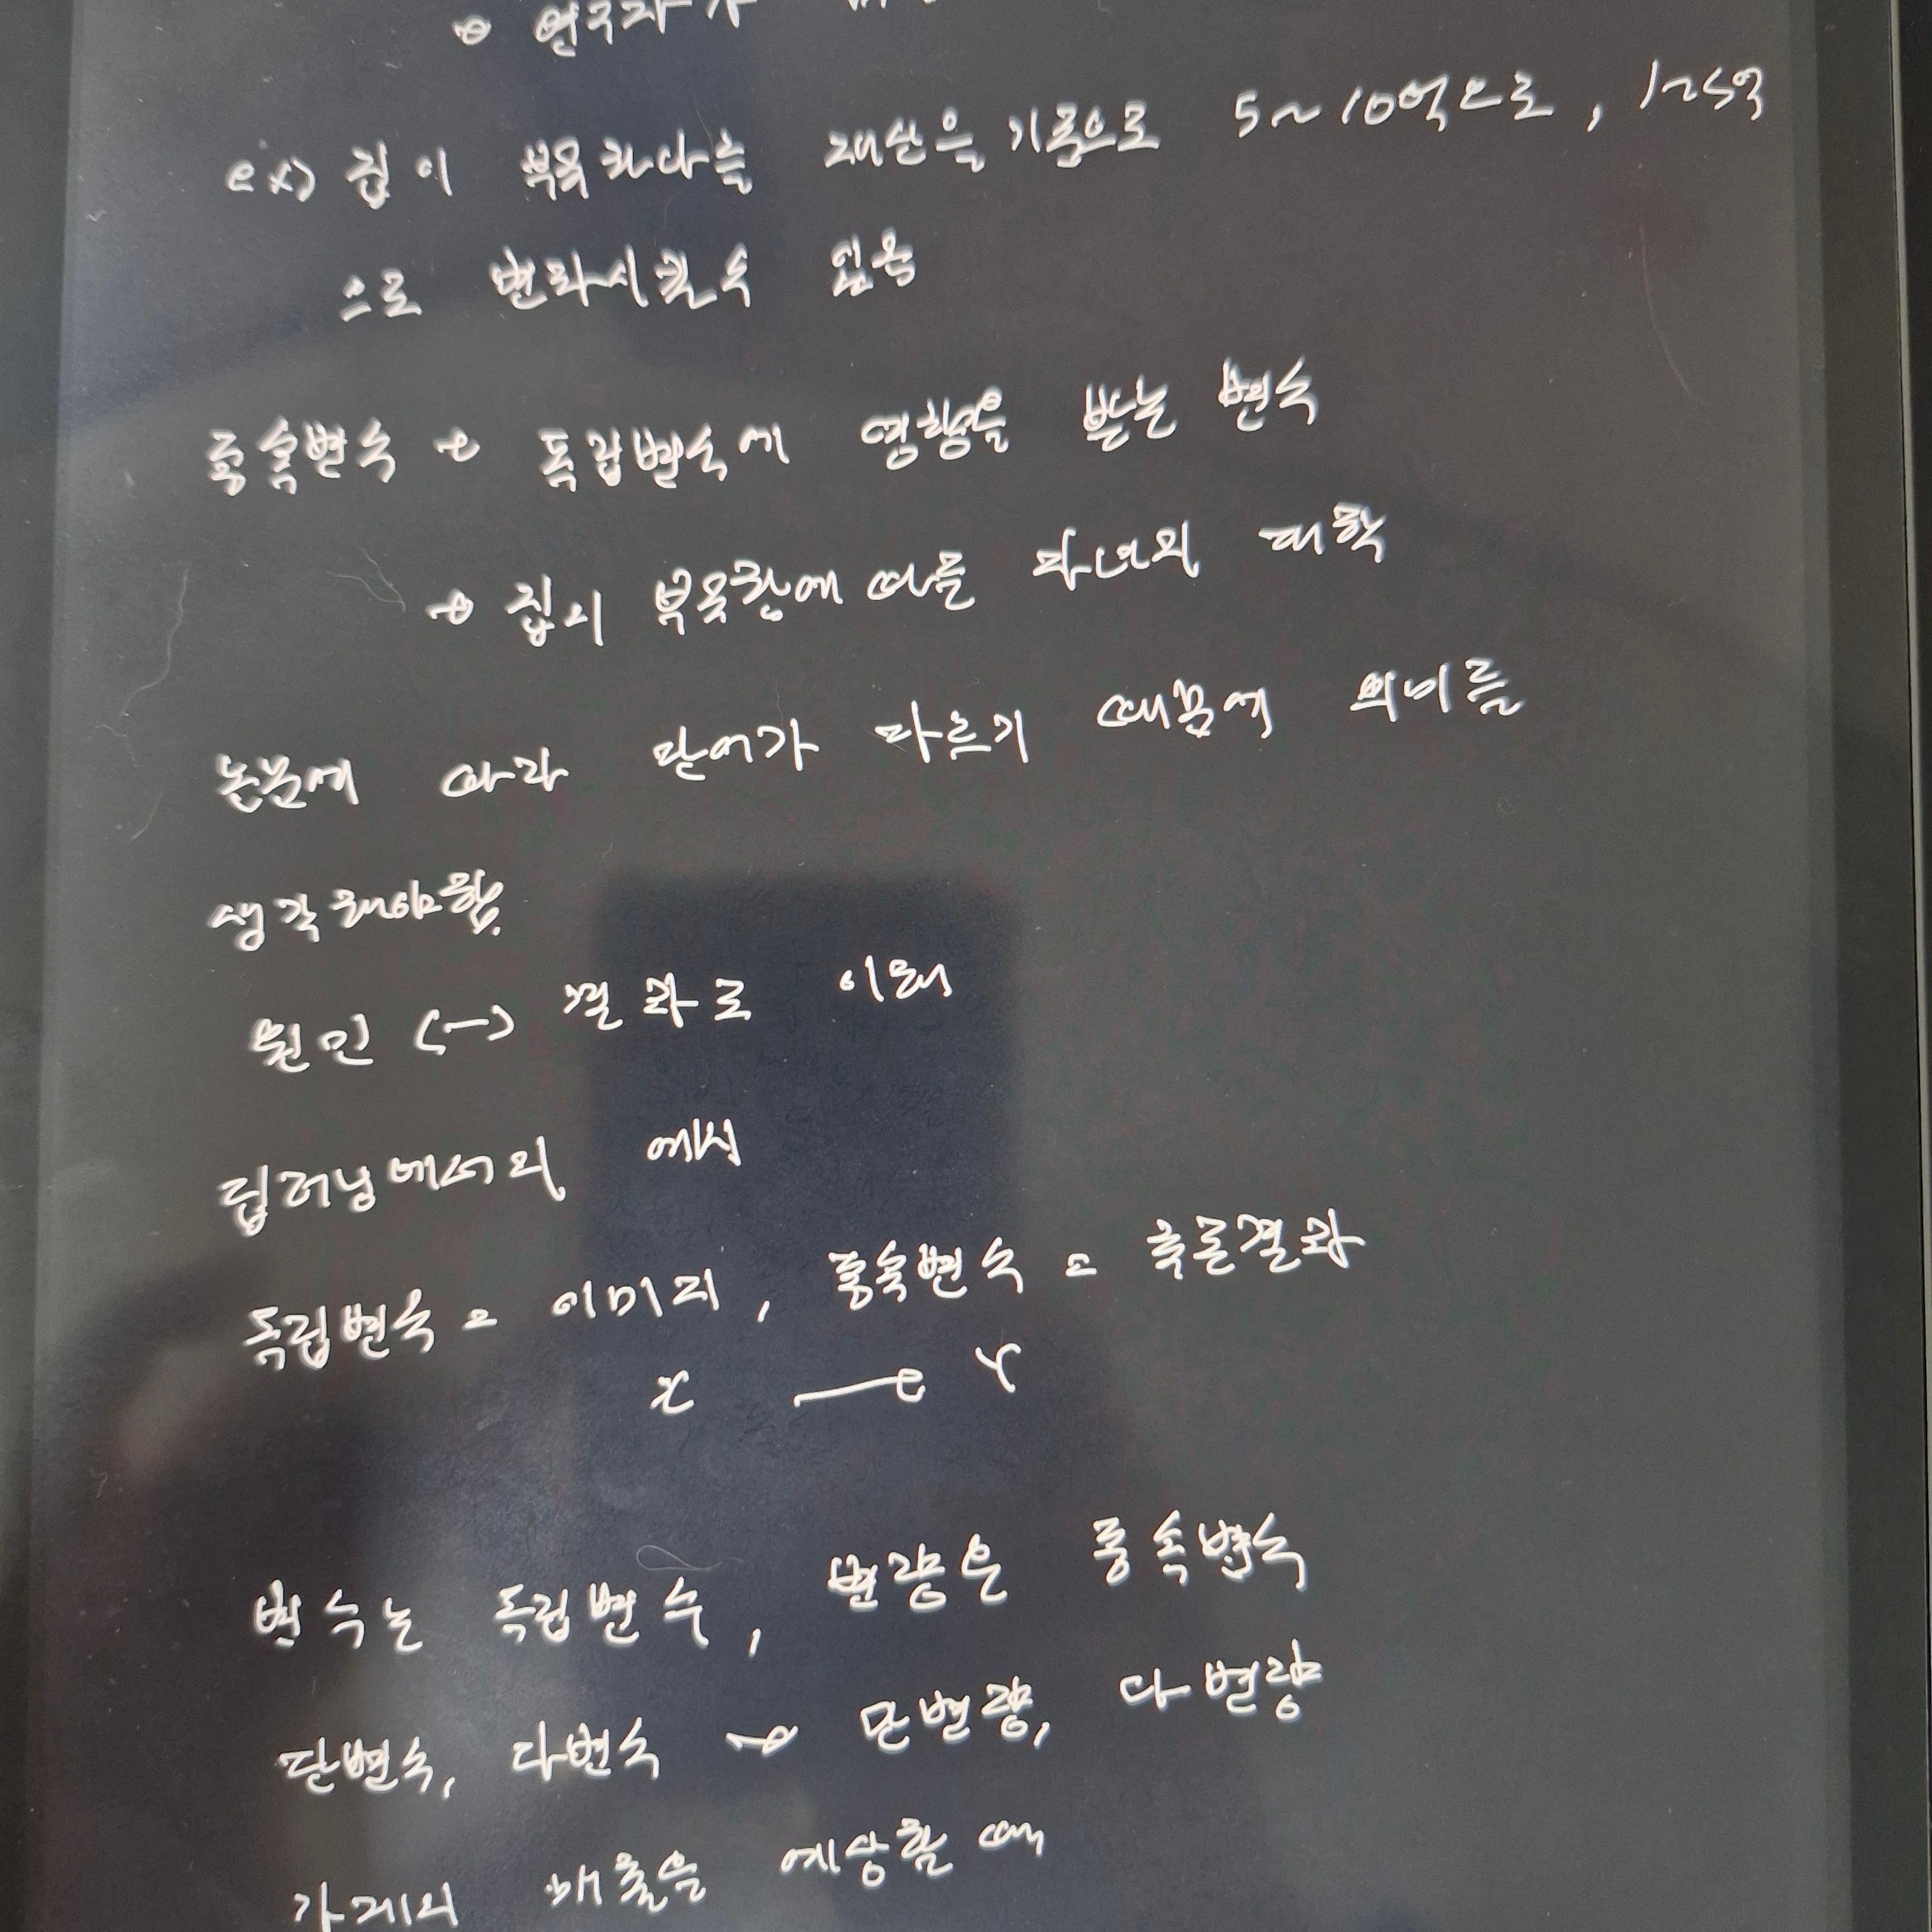 → 연구자가
ex) 집이 부유하다는 재산을 기준으로 5~10억으로, 1~5억
으로 변화시킬 수 있음
종속변수 → 독립변수에 영향을 받는 변수
→ 집의 부유함에 따른 자녀의 대학
논문에 따라 단어가 다르기 때문에 의미를
생각해야함.
원인 <-> 결과로 이해
딥러닝에서의 예시
독립변수 = 이미지, 종속변수 = 추론결과
x → Y
변수는 독립변수, 변량은 종속변수
단변수, 다변수 → 단변량, 다변량
가게의 매출을 예상할 때